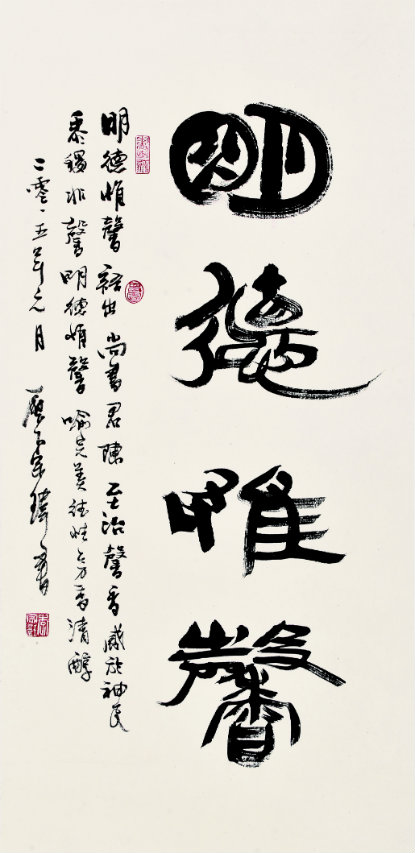 明德惟馨
明德惟馨語出尚書君陳至治馨香感於神
黍稷非馨明德惟馨喻完美德性芳香清醇
二零一五年元月書